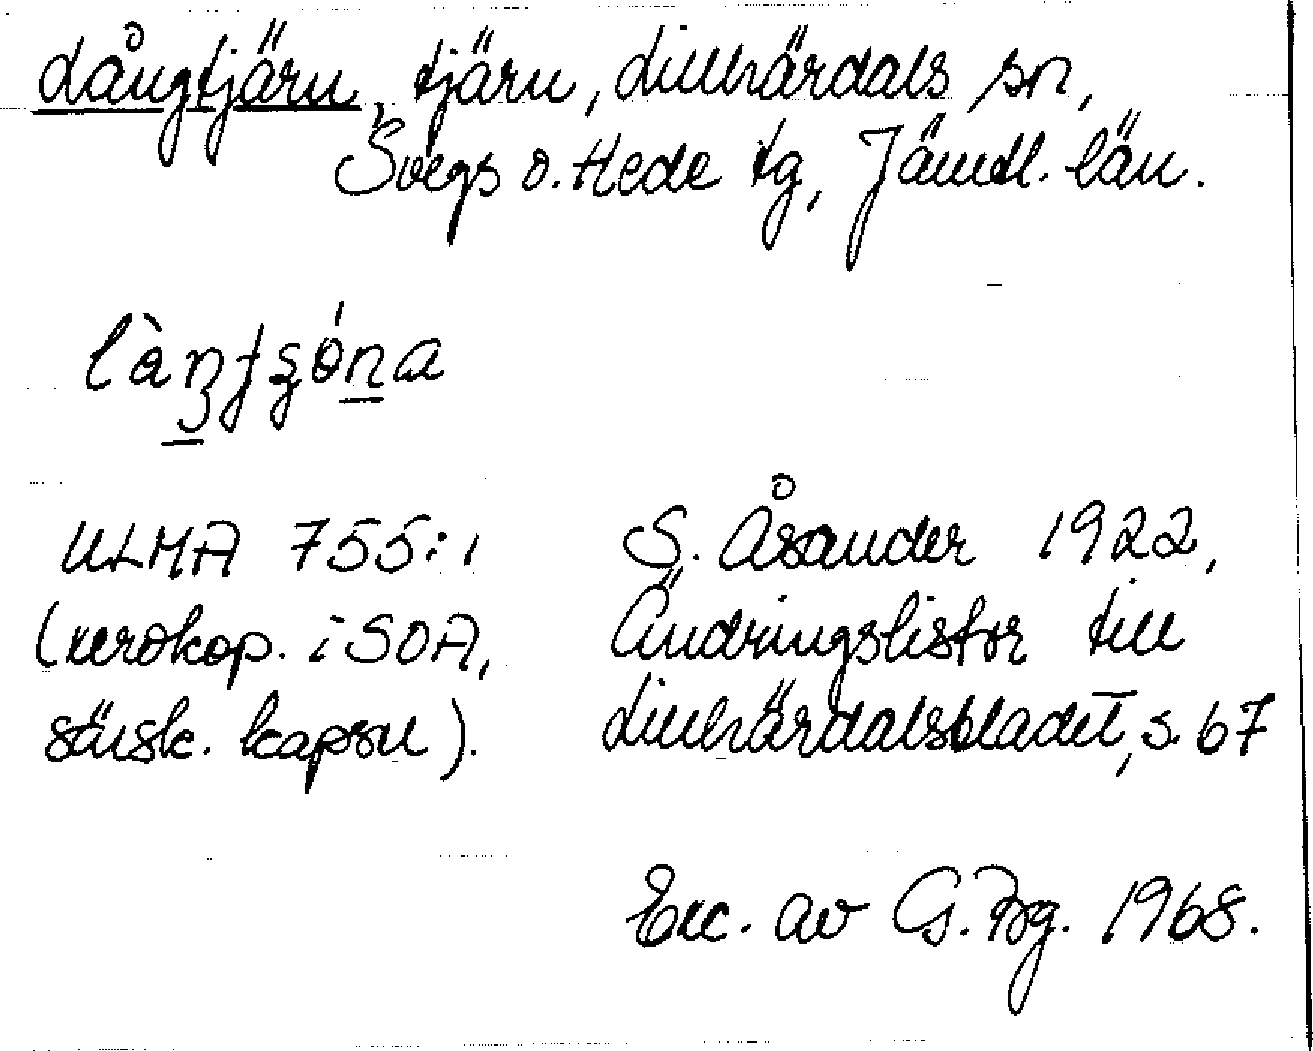 Långtjärn, tjärn, Lillhärdals sn,
Svegs o. Hede tg, Jämtl. län.
ULMA 755:1
(xerokop. i SOA,
särsk. kapsel).
S. Åsander 1922,
Ändringslistor till
Lillhärdalsbladet, s. 67
Exc. av G. Brg. 1968.